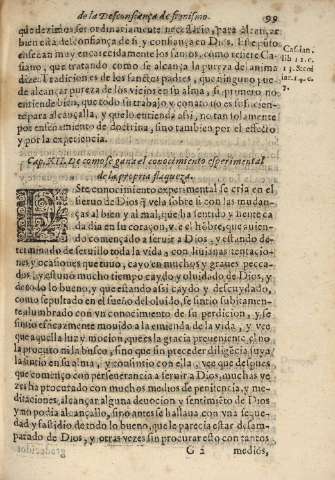 de la Desconfiança de si mismo. 99
que dezimos ser ordinariamente necessario, para alcançar
bien esta desconfiança de si, y confiança en Dios. Este puto
enseñan muy encarecidamente los santos, como refiere Ca
siano, que tratando como se alcança la pureza del anima
dize: Es tradicion es de los sanctos padres, que ninguno pue
de alcançar pureza de los vicios en su alma, si primero no
entiende bien, que todo su trabajo y conato no es suficien-
te para alcançalla, y que lo entienda assi, no tan solamente
por enseñamiento de doctrina, sino tambien por el effecto
y por la experiencia.
Cassian.
lib 12. c.
13.
14. c.
7.
Cap. XII. De como se gana el conocimiento esperimental
de la propria flaqueza.
ESte conocimiento experimental se cria en el
sieruo de Dios q̃ vela sobre si con las mudan-
ças al bien y al mal, que ha sentido y siente ca
da dia en su coraçon, v. e. el hõbre, que auien-
do començado a seruir a Dios, y estando de-
terminado de seruillo toda la vida, con liuianas tentacio-
nes y ocasiones que tuuo, cayo en muchos y graues pecca-
dos. Y estuuo mucho tiempo caydo y oluidado de Dios, y
de todo lo bueno, y que estando assi caydo y descuydado,
como sepultado en el sueño del oluido, se sintio subitamen-
te alumbrado con vn conocimiento de su perdicion, y se
sintio efficazmente mouido a la emienda de la vida, y vee
que aquella luz y mocion, que es la gracia preueniente el no
la procuro ni la busco, sino que sin preceder diligẽcia suya
la sintio en su alma, y consintio con ella, vee que despues,
que començo con perseuerancia a seruir a Dios, muchas ve
zes ha procurado con muchos medios de penitencia, y me-
ditaciones, alcançar alguna deuocion y sentimiẽto de Dios
y no podia alcançallo, sino antes se hallaua con vna seque-
dad y fastidio de todo lo bueno, que le parecia estar desam-
parado de Dios, y otras vezes sin procurar ello con tantos
G 2 medios,